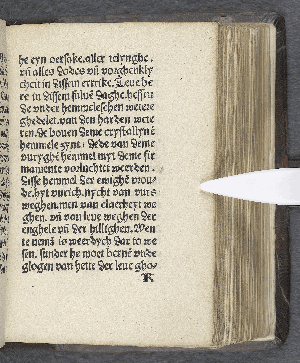 he eyn oersake. aller telynghe.
vñ alles dodes vñ vorghenkly
cheit in dissem ertrike. Leue he
re in dissem sulue daghe. hestu
de vnder hemmeleschen watere
ghedelet. van den harden wate
ren. de bouen deme cristallynē
hemmele synt. Dede van deme
vuryghē hemmel myt deme fir
mamente vorluchtet werden.
Disse hemmel der ewighē vrou
de. hyt vurich. nycht van vurs
weghen. men van claerheyt we
ghen. vñ van leue weghen der
enghele vñ der hillighen. Wen
te nemāt is weerdych dar to we
sen. sunder he moet bernē vnde
gloyen van hette der leue gho-
K